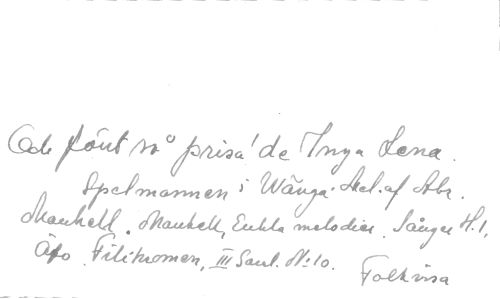 Och sånt så prisa' de Inga Lena.
Spelmannen i Wånga. Mel. af Abr.
Mankell. Mankell, Enkla melodier. Sånger H. 1,
Äfo Filikromen, III Saml. No 10.
Folkvisa